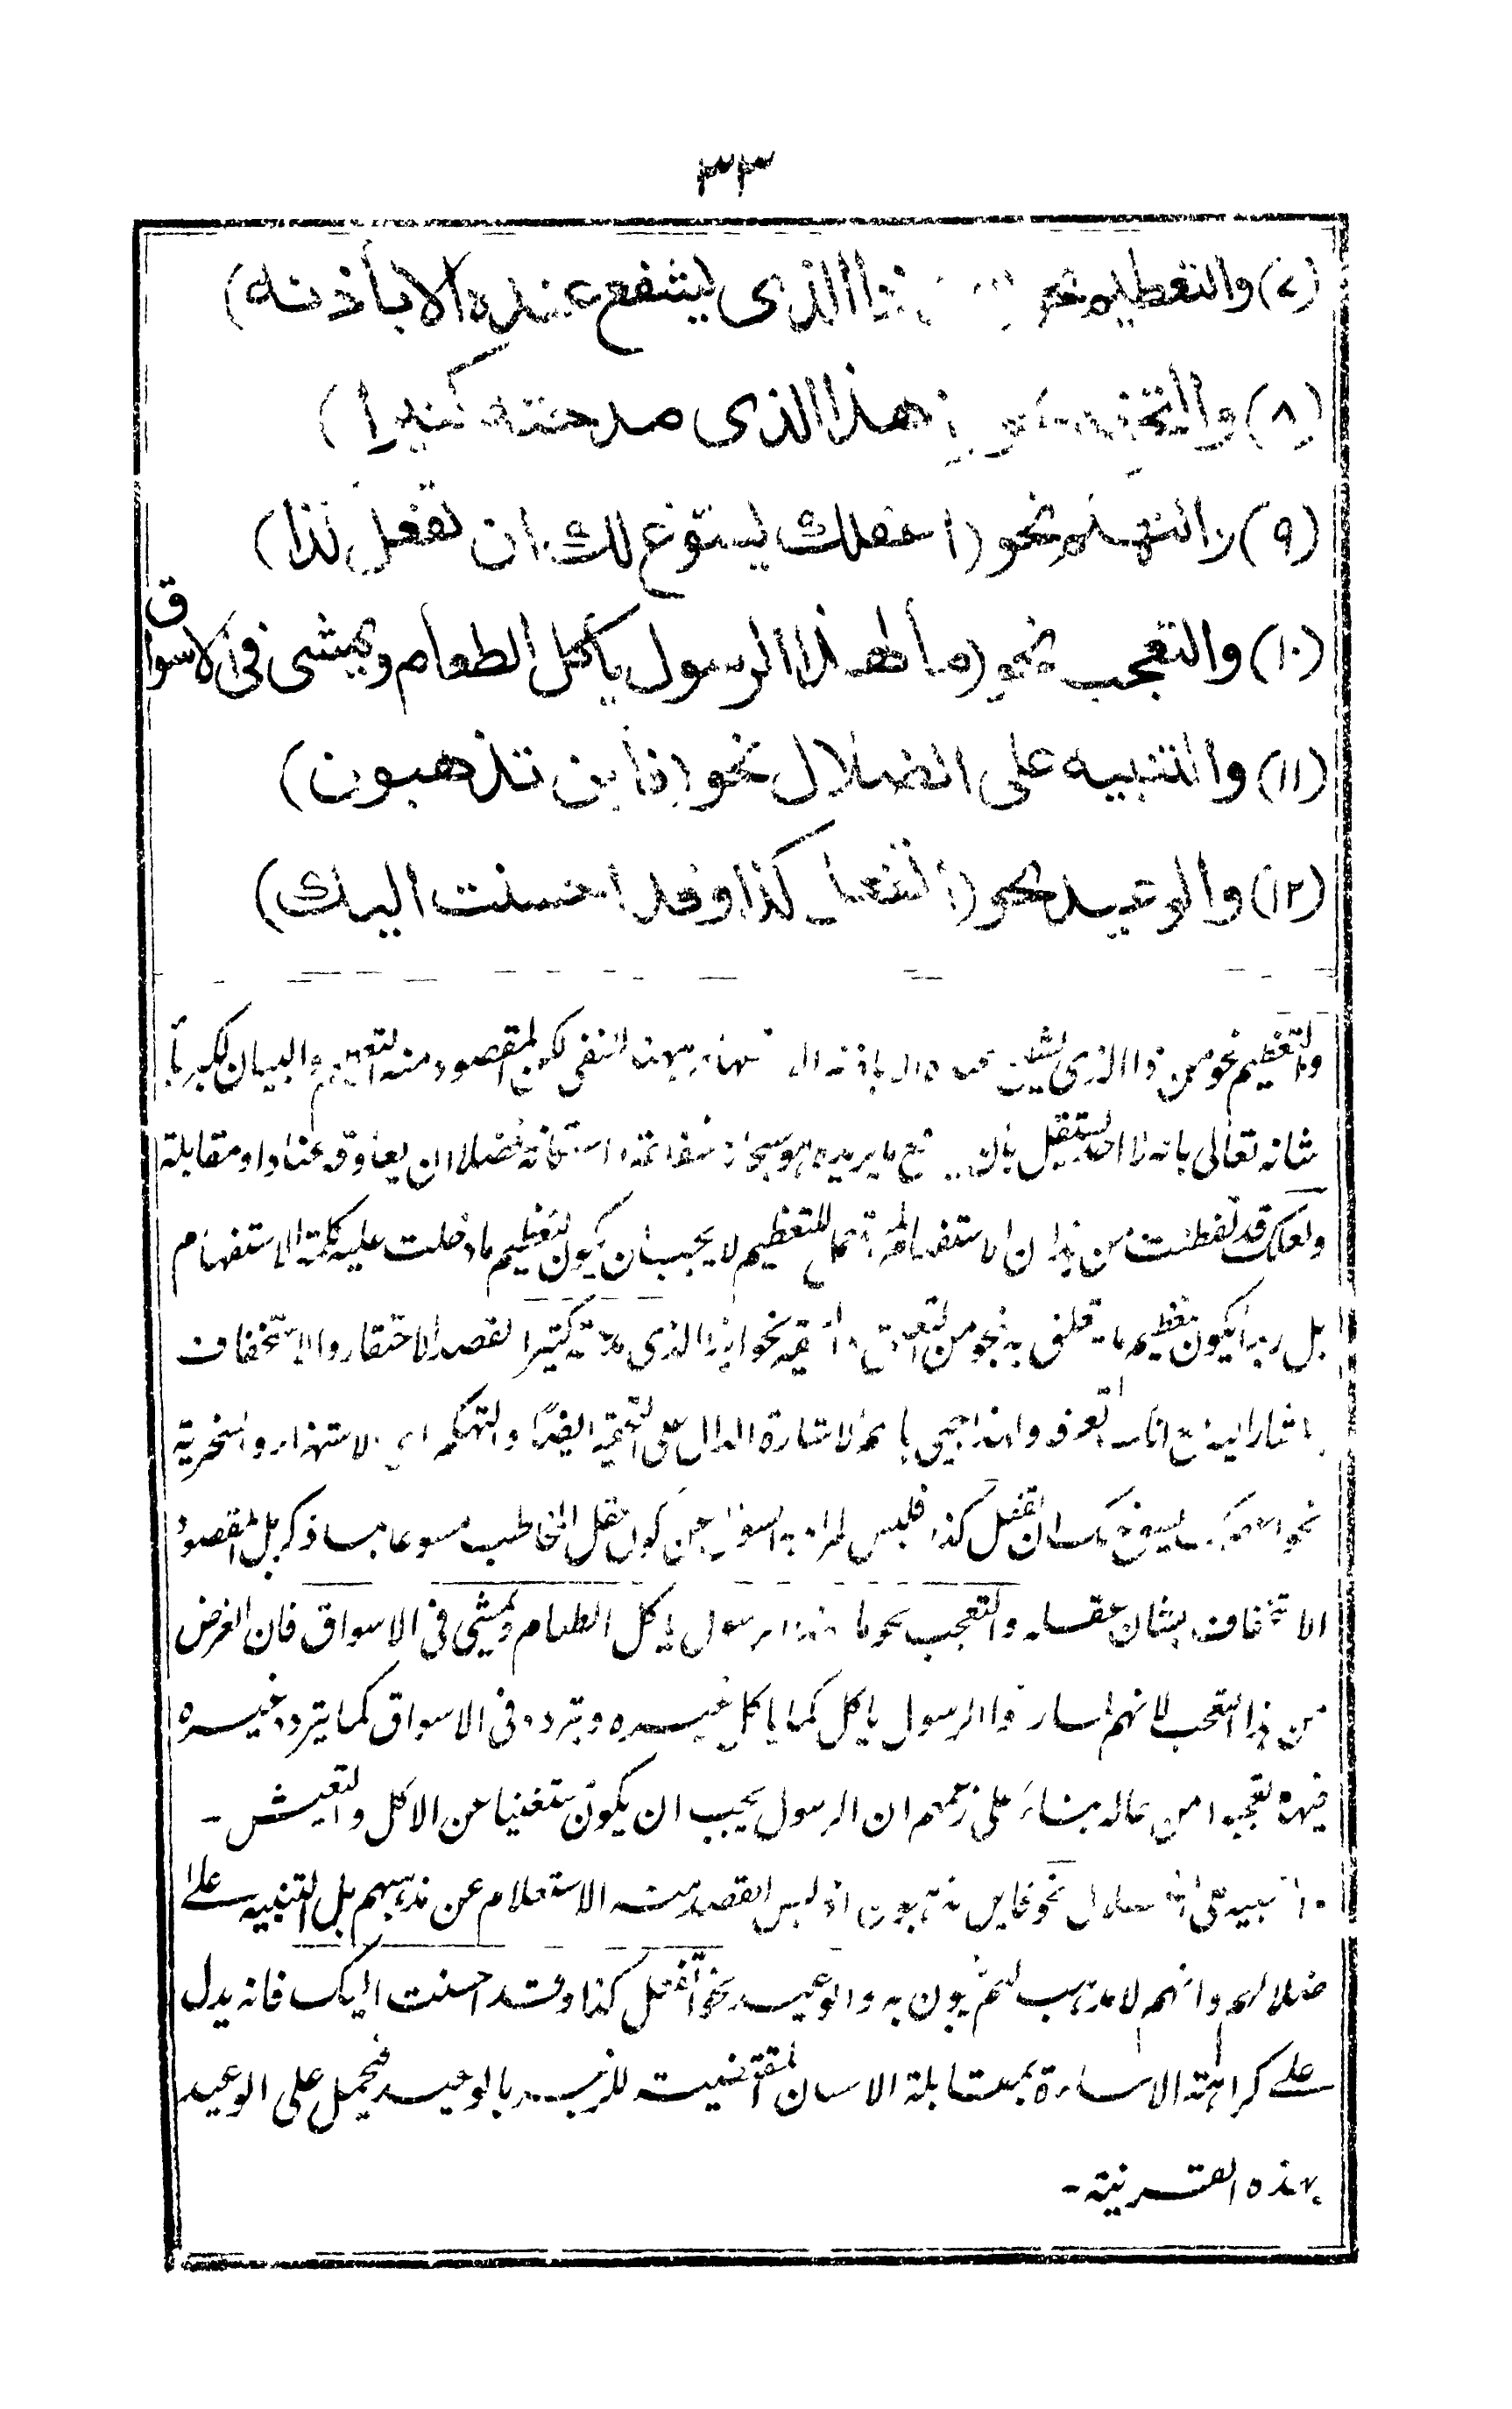 ٣٣
(٧) والتعظيم نحو ذا الذى يشفع عنده الا باذنه)
(٨) والتحقير نحو هذا الذى مدحته كثيرا)
(٩) والتهكم نحو (اعقلك يسوغ لك ان تفعل كذا)
(١٠) والتعجب نحو (مالهذا الرسول يأكل الطعام ويمشى فى الاسواق
(١١) والتنبيه على الضلال نحو (فأين تذهبون)
(١٢) والوعيد نحو (اتفعل كذا وقد احسنت اليك)
والتعظيم نحو من ذا الذى يشفع عنده الا باذنه للنفى لكن المقصود منه التعظيم والبيان لكبرياء
شانه تعالى بانه لا احد يستقل بان يدفع ما يريده شفاعة واستكانة فضلا ان يعاوقه عنادا ومقابلة
ولعلك قد تفطنت من هذا ان الاستفهام للتعظيم لا يجب ان يكون لتعظيم ما دخلت عليه كلمة الاستفهام
بل ربما يكون لتعظيم ما يتعلق به بنحو من التعلق والتحقير نحو اهذا الذى مدحته كثيرا لقصد الاحتقار والاستخفاف
باسم الاشارة الدال على التحقير ايضا والتهكم اى الاستهزاء والسخرية
نحو اعقلك يسوغ لك ان تفعل كذا فليس المراد به السؤال عن كون عقل المخاطب مسوغا لما ذكر بل المقصود
الاستخفاف بشان عقله والتعجب نحو ما لهذا الرسول ياكل الطعام ويمشى فى الاسواق فان الغرض
من هذا التعجب لانهم لما راوا الرسول ياكل كما ياكل غيره ويتردد فى الاسواق كما يتردد غيره
تعجبوا من حاله بناء على زعمهم ان الرسول يجب ان يكون مستغنيا عن الاكل والتعيش -
والتنبيه على الضلال نحو فاين تذهبون اذ ليس القصد منه الاستعلام عن مذهبهم بل التنبيه على
ضلالهم وانهم لا مذهب لهم يذهبون به والوعيد نحو اتفعل كذا وقد احسنت اليك فانه يدل
على كراهته الاساءة بمقابلة الاحسان المقتضية للزجر بالوعيد فيحمل على الوعيد
بهذه القرينة -